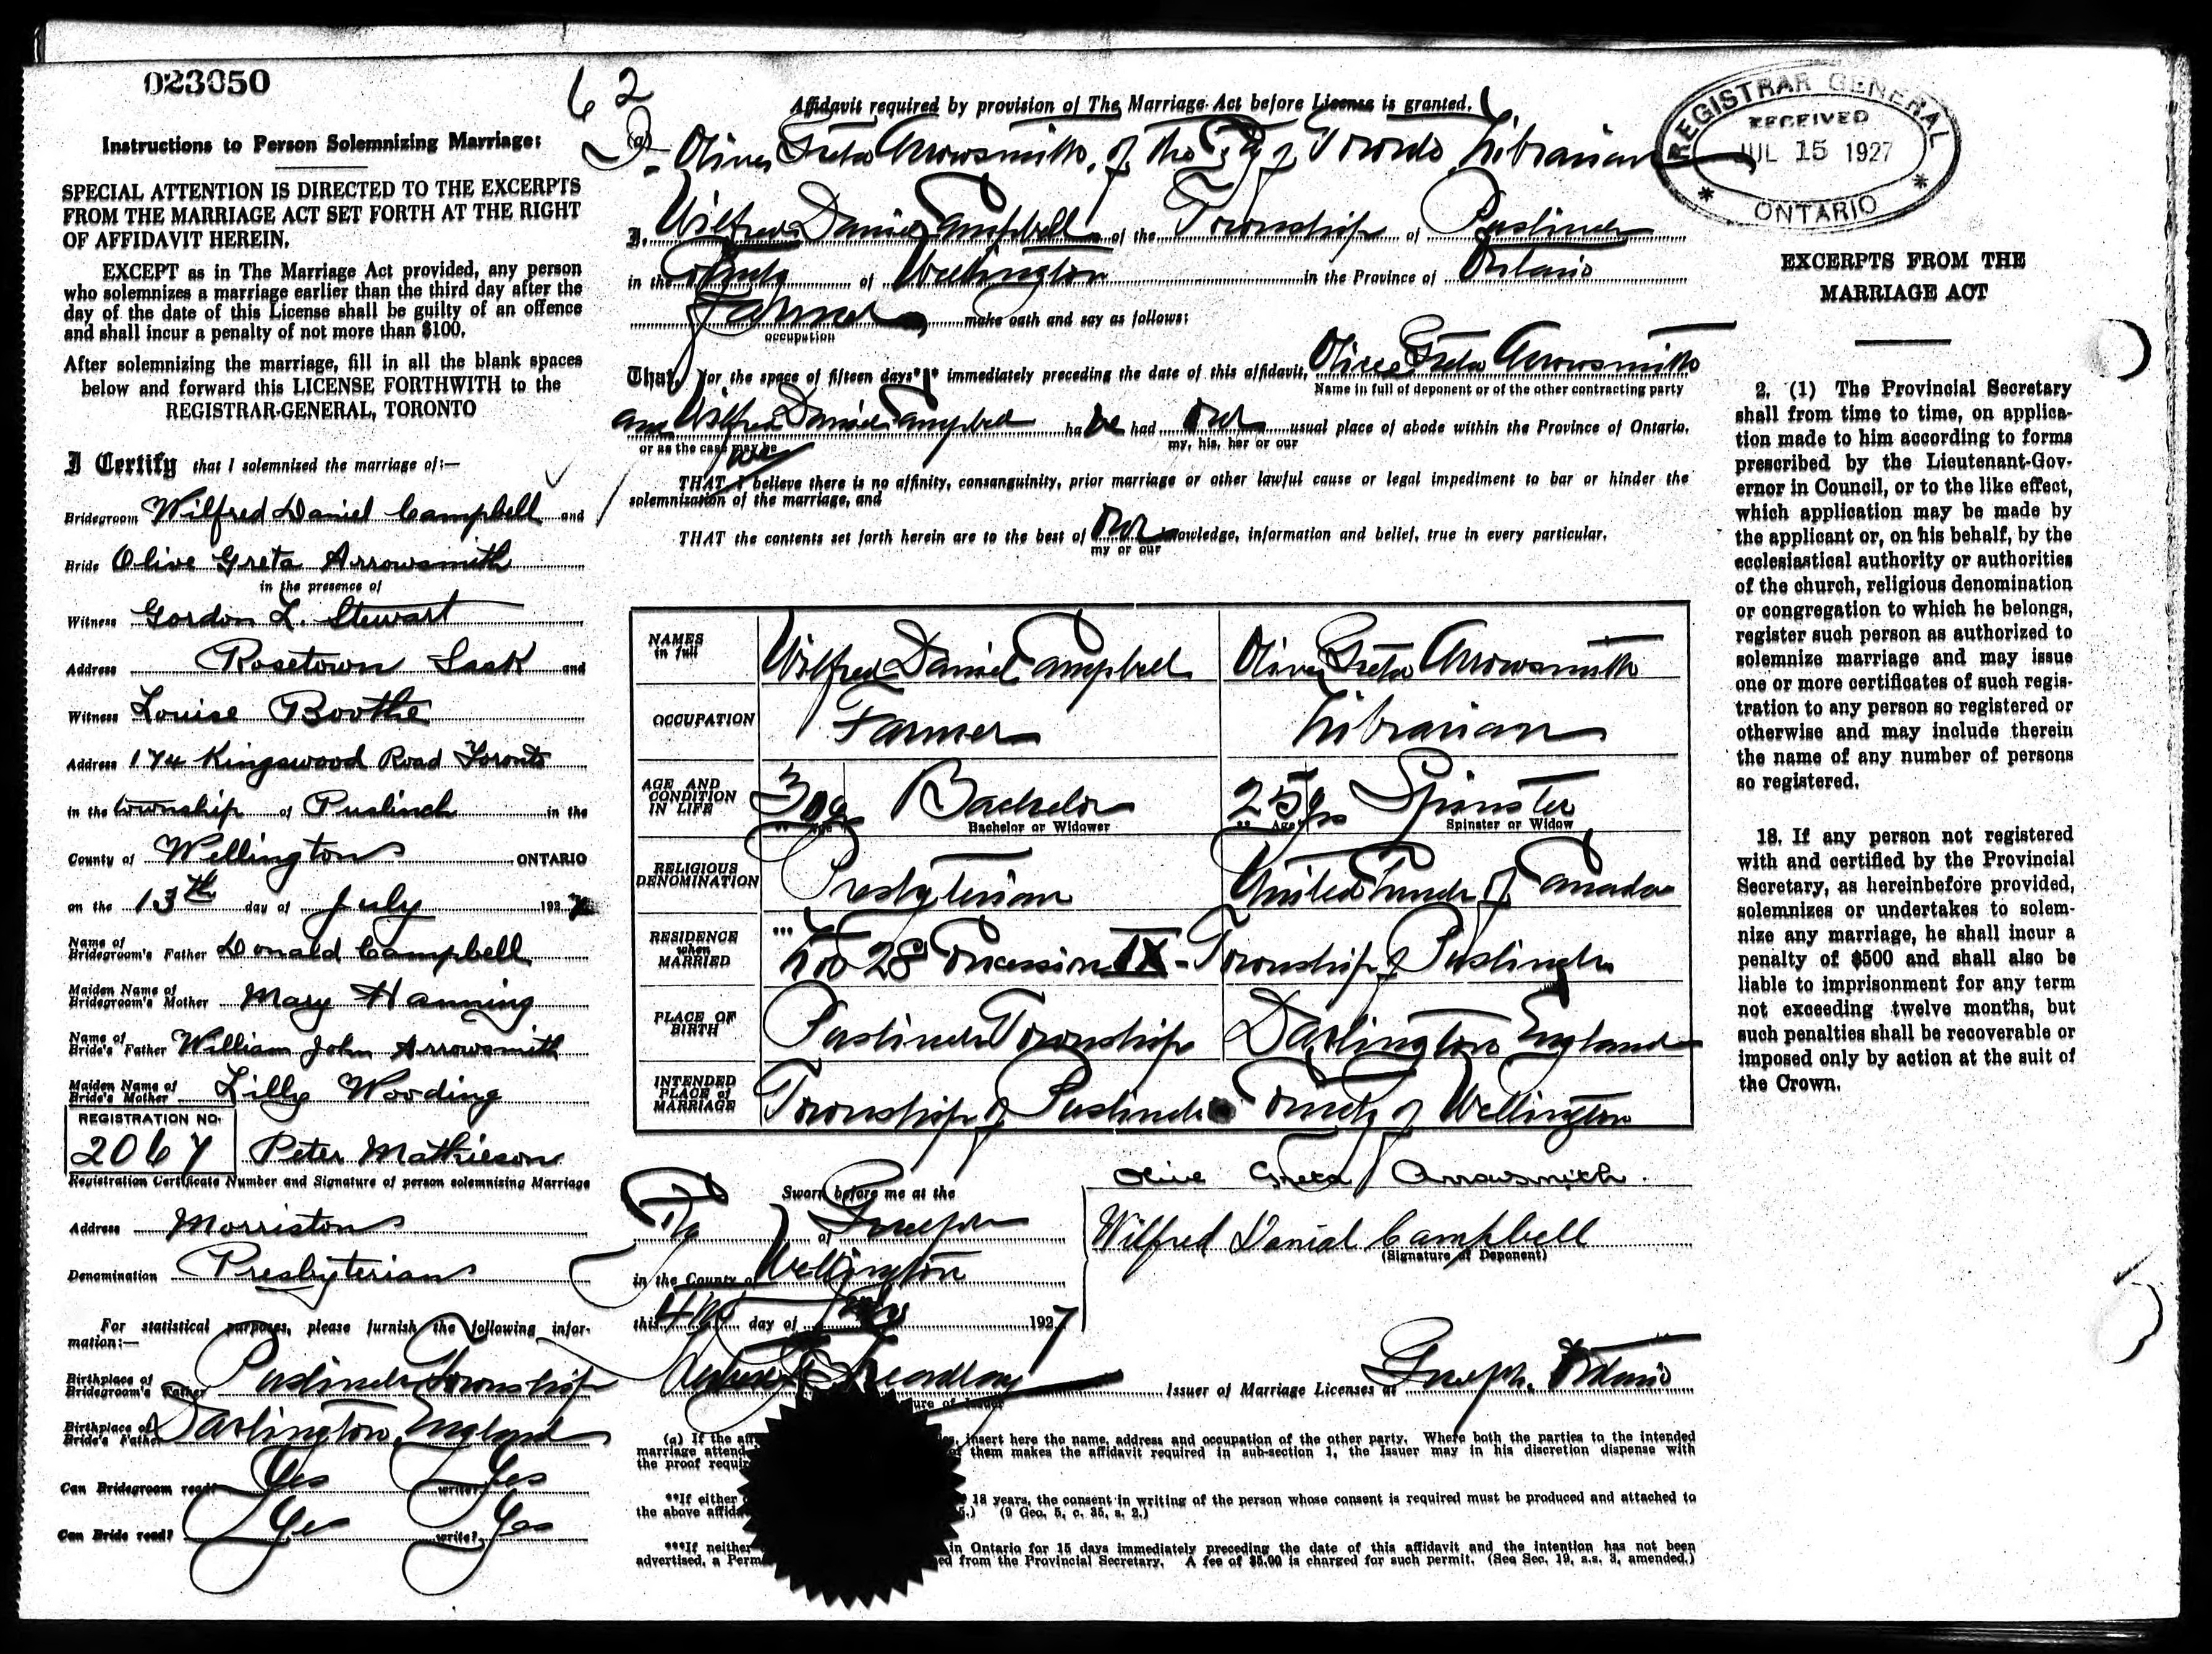 023050
62
Instructions to Person Solemnizing Marriage:
SPECIAL ATTENTION IS DIRECTED TO THE EXCERPTS
FROM THE MARRIAGE ACT SET FORTH AT THE RIGHT
OF AFFIDAVIT HEREIN.
EXCEPT as in The Marriage Act provided, any person
who solemnizes a marriage earlier than the third day after the
day of the date of this License shall be guilty of an offence
and shall incur a penalty of not more than $100.
After solemnizing the marriage, fill in all the blank spaces
below and forward this LICENSE FORTHWITH to the
REGISTRAR-GENERAL, TORONTO
I Certify that I solemnized the marriage of:—
Bridegroom Wilfred Daniel Campbell and
Bride Olive Greta Arrowsmith
in the presence of
Witness Gordon L. Stewart
Address Rosetown Sask and
Witness Louise Boothe
Address 174 Kingswood Road Toronto
in the township of Puslinch in the
County of Wellington ONTARIO
on the 13th day of July 1927
Name of
Bridegroom's Father Donald Campbell
Maiden Name of
Bridegroom's Mother Mary Hanning
Name of
Bride's Father William John Arrowsmith
Maiden Name of
Bride's Mother Lilly Wooding
REGISTRATION NO.
2067 Peter Mathieson
Registration Certificate Number and Signature of person solemnizing Marriage
Address Morriston
Denomination Presbyterian
For statistical purposes, please furnish the following infor-
mation:—
Birthplace of
Bridegroom's Father Puslinch Township
Birthplace of
Bride's Father Darlington, England
Can Bridegroom read? Yes write? Yes
Can Bride read? Yes write? Yes
Affidavit required by provision of The Marriage Act before License is granted.
(a) Olive Greta Arrowsmith, of the City of Toronto, Librarian
I, Wilfred Daniel Campbell of the Township of Puslinch
in the County of Wellington in the Province of Ontario
Farmer make oath and say as follows:
occupation
That, for the space of fifteen days*I* immediately preceding the date of this affidavit, Olive Greta Arrowsmith
Name in full of deponent or of the other contracting party
and Wilfred Daniel Campbell ha ve had our usual place of abode within the Province of Ontario.
or as the case may be
my, his, her or our
we
THAT I believe there is no affinity, consanguinity, prior marriage or other lawful cause or legal impediment to bar or hinder the
solemnization of the marriage, and
THAT the contents set forth herein are to the best of our knowledge, information and belief, true in every particular.
my or our
NAMES
in full
Wilfred Daniel Campbell
Olive Greta Arrowsmith
OCCUPATION
Farmer
Librarian
AGE AND
CONDITION
IN LIFE
30 yrs
** Age
Bachelor
Bachelor or Widower
25 yrs
** Age
Spinster
Spinster or Widow
RELIGIOUS
DENOMINATION
Presbyterian
United Church of Canada
RESIDENCE
when
MARRIED
***
Lot 28 Concession IX - Township of Puslinch
PLACE OF
BIRTH
Puslinch Township
Darlington England
INTENDED
PLACE of
MARRIAGE
Township of Puslinch County of Wellington
Sworn before me at the
of Guelph
in the County of Wellington
this day of 1927
Issuer of Marriage Licenses at Guelph, Ontario
Olive Greta Arrowsmith.
Wilfred Danial Campbell
(Signature of Deponent)
(a) If the aff insert here the name, address and occupation of the other party. Where both the parties to the intended
marriage attend them makes the affidavit required in sub-section 1, the Issuer may in his discretion dispense with
the proof requir
**If either 18 years, the consent in writing of the person whose consent is required must be produced and attached to
the above affida (9 Geo. 5, c. 35, s. 2.)
***If neither in Ontario for 15 days immediately preceding the date of this affidavit and the intention has not been
advertised, a Perm ed from the Provincial Secretary. A fee of $5.00 is charged for such permit. (See Sec. 19, s.s. 3, amended.)
REGISTRAR GENERAL
RECEIVED
JUL 15 1927
* ONTARIO *
EXCERPTS FROM THE
MARRIAGE ACT
2. (1) The Provincial Secretary
shall from time to time, on applica-
tion made to him according to forms
prescribed by the Lieutenant-Gov-
ernor in Council, or to the like effect,
which application may be made by
the applicant or, on his behalf, by the
ecclesiastical authority or authorities
of the church, religious denomination
or congregation to which he belongs,
register such person as authorized to
solemnize marriage and may issue
one or more certificates of such regis-
tration to any person so registered or
otherwise and may include therein
the name of any number of persons
so registered.
18. If any person not registered
with and certified by the Provincial
Secretary, as hereinbefore provided,
solemnizes or undertakes to solem-
nize any marriage, he shall incur a
penalty of $500 and shall also be
liable to imprisonment for any term
not exceeding twelve months, but
such penalties shall be recoverable or
imposed only by action at the suit of
the Crown.